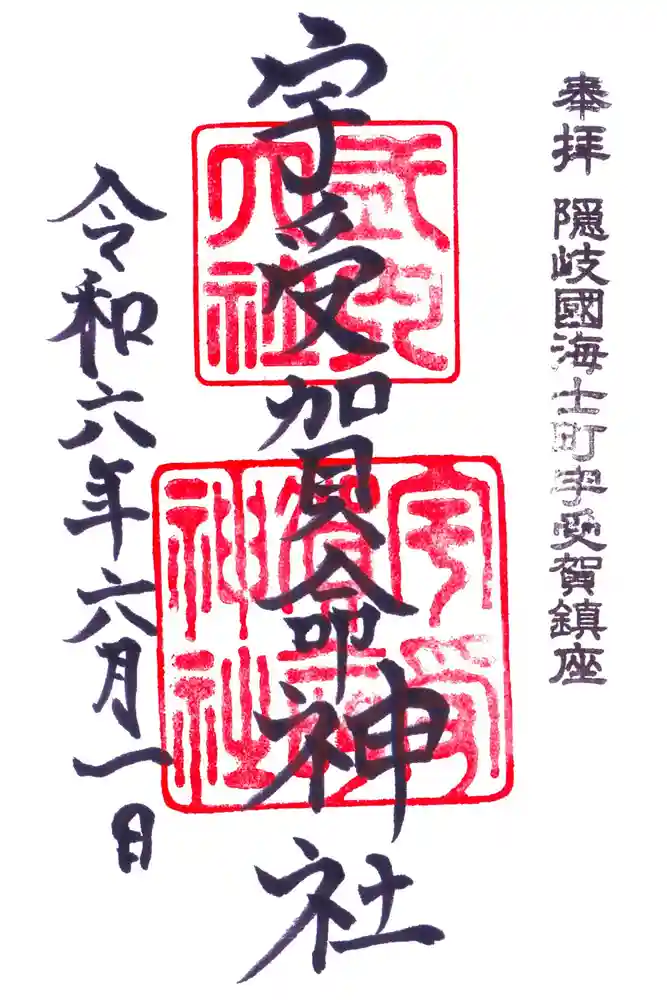 奉拝 隠岐國海士町宇受賀鎮座
式内
大社
宇受賀命神社
宇受
賀命
神社
令和六年六月一日